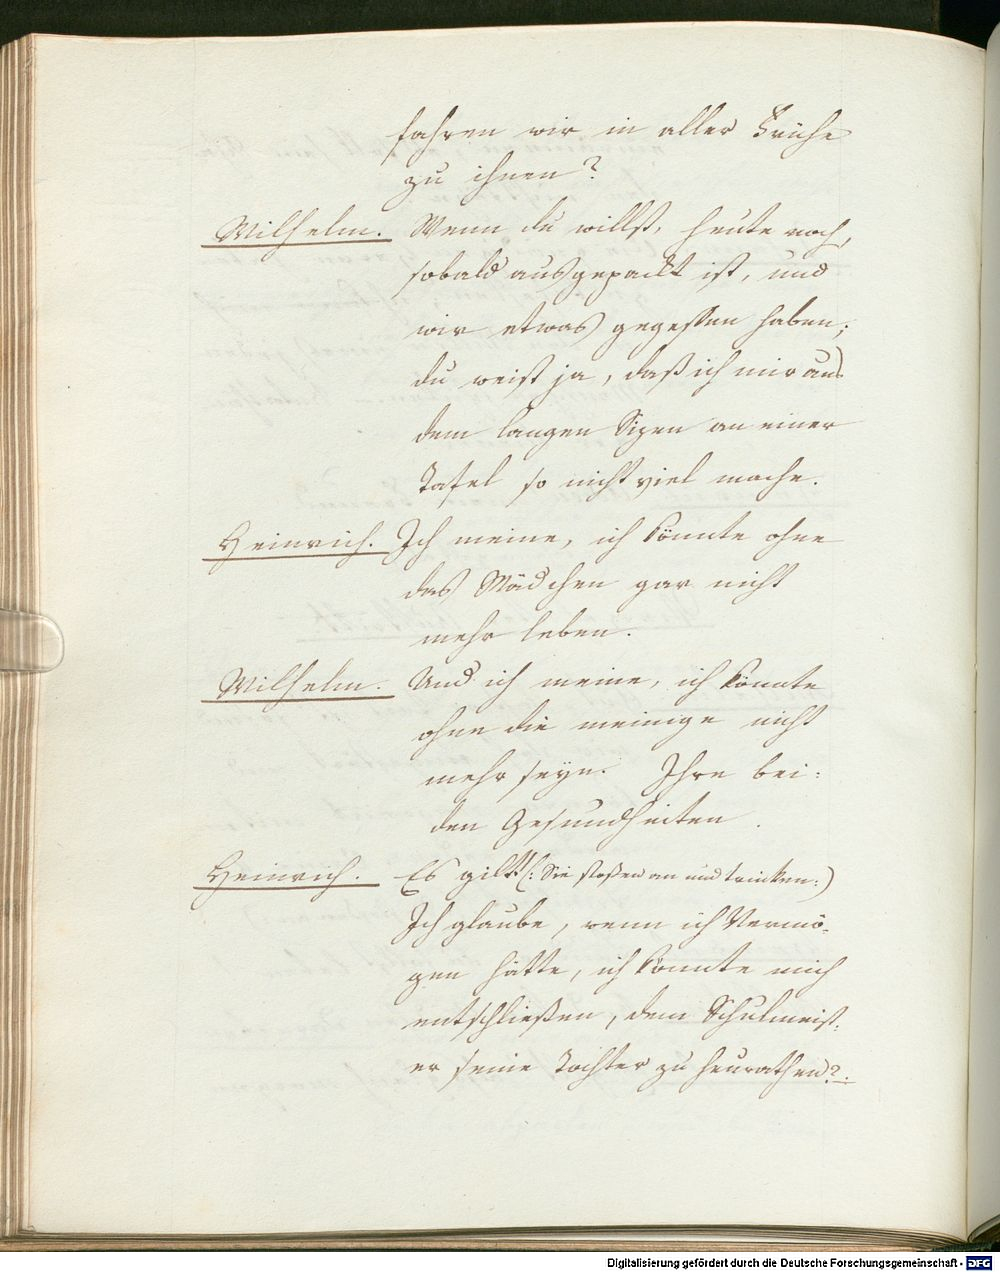 fahren wir in aller Frühe
zu ihnen?
Wilhelm. Wenn du willst, heute noch,
sobald ausgepackt ist, und
wir etwas gegessen haben;
du weist ja, daß ich mir aus
dem langen Sizen an einer
Tafel so nicht viel mache.
Heinrich. Ich meine, ich könnte ohne
das Mädchen gar nicht
mehr leben.
Wilhelm. Und ich meine, ich könnte
ohne die meinige nicht
mehr seyn. Ihre bei-
den Gesundheiten.
Heinrich. Es gilt! (: Sie stoßen an und trinken :)
Ich glaube, wenn ich Vermö-
gen hätte, ich könnte mich
entschließen, dem Schulmeist-
er seine Tochter zu heurathen?.
Digitalisierung gefördert durch die Deutsche Forschungsgemeinschaft - DFG